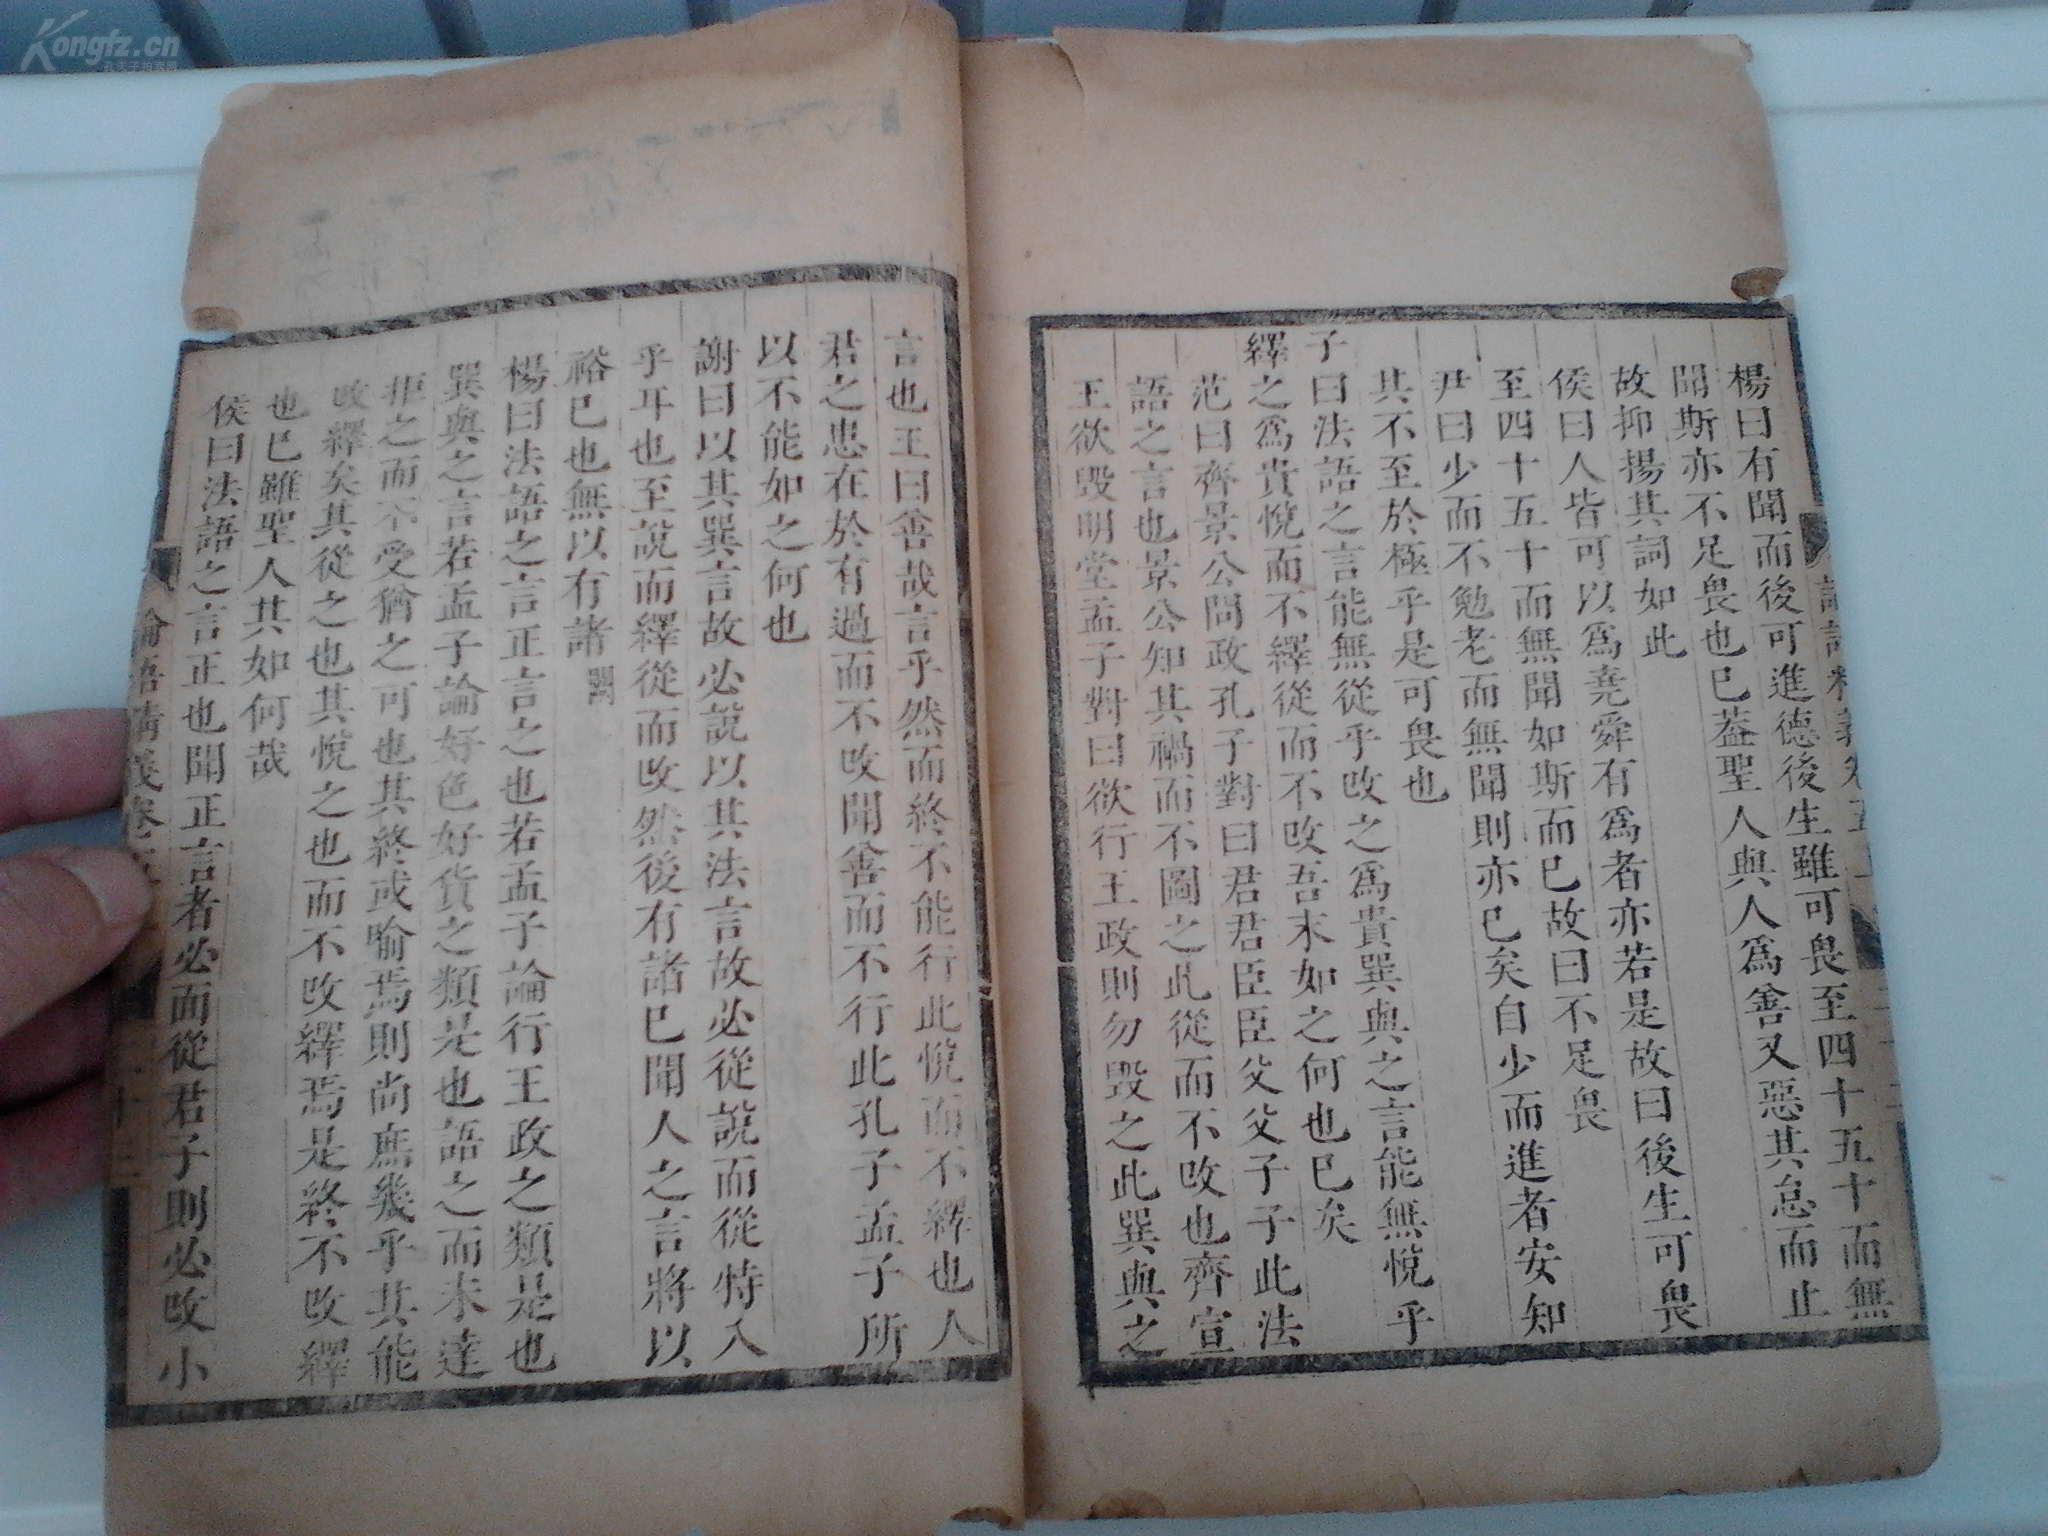 楊曰有聞而後可進德後生雖可畏至四十五十而無
聞斯亦不足畏也巳葢聖人與人爲善又惡其怠而止
故抑揚其詞如此
侯曰人皆可以爲堯舜有爲者亦若是故曰後生可畏
至四十五十而無聞如斯而巳故曰不足畏
尹曰少而不勉老而無聞則亦巳矣自少而進者安知
其不至於極乎是可畏也
子曰法語之言能無從乎改之爲貴巽與之言能無悅乎
繹之爲貴悅而不繹從而不改吾末如之何也巳矣
范曰齊景公問政孔子對曰君君臣臣父父子子此法
語之言也景公知其禍而不圖之此從而不改也齊宣
王欲毀明堂孟子對曰欲行王政則勿毀之此巽與之
言也王曰善哉言乎然而終不能行此悅而不繹也人
君之患在於有過而不改聞善而不行此孔子孟子所
以不能如之何也
謝曰以其巽言故必說以其法言故必從說而從特入
乎耳也至說而繹從而改然後有諸巳聞人之言將以
裕巳也無以有諸
楊曰法語之言正言之也若孟子論行王政之類是也
巽與之言若孟子論好色好貨之類是也語之而未達
拒之而不受猶之可也其終或喻焉則尚庶幾乎其能
改繹矣其從之也其悅之也而不改繹焉是終不改繹
也巳雖聖人其如何哉
侯曰法語之言正也聞正言者必而從君子則必改小
論語精義卷五
十三
Kongfz.cn